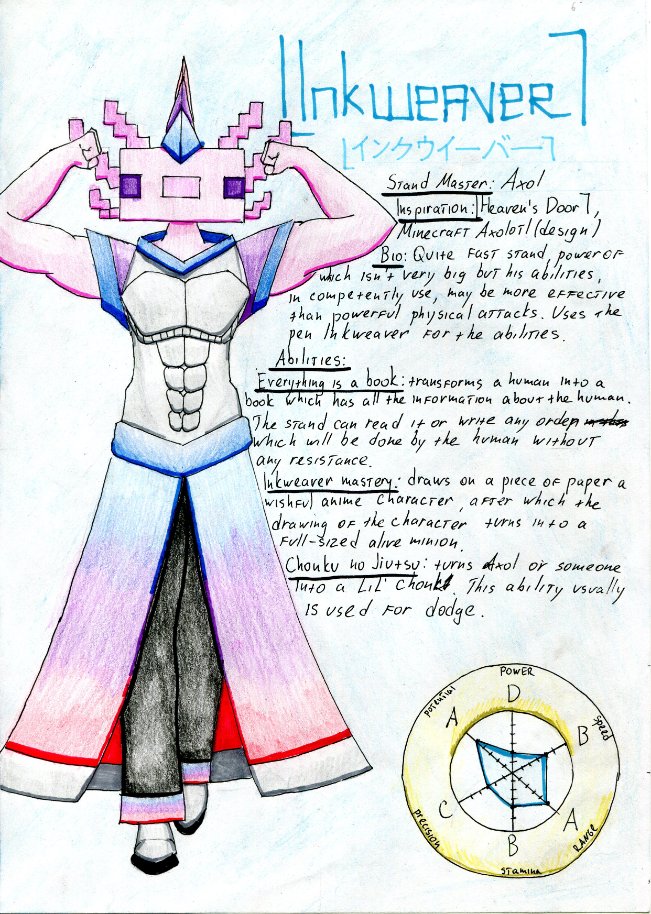 「Inkweaver」
「インクウイーバー」
Stand Master: Axol
Inspiration: Heaven's Door」,
Minecraft Axolotl (design)
Bio: Quite fast stand, power of
which isn't very big but his abilities,
in competently use, may be more effective
than powerful physical attacks. Uses the
pen Inkweaver for the abilities.
Abilities:
Everything is a book: transforms a human into a
book which has all the information about the human.
The stand can read it or write any order
which will be done by the human without
any resistance.
Inkweaver mastery: draws on a piece of paper a
wishful anime character, after which the
drawing of the character turns into a
full-sized alive minion.
Chonku no Jiutsu: turns Axol or someone
into a Lil' Chonk. This ability usually
is used for dodge.
POWER
D
potential
A
speed
B
C
A
precision
B
RANGE
stamina